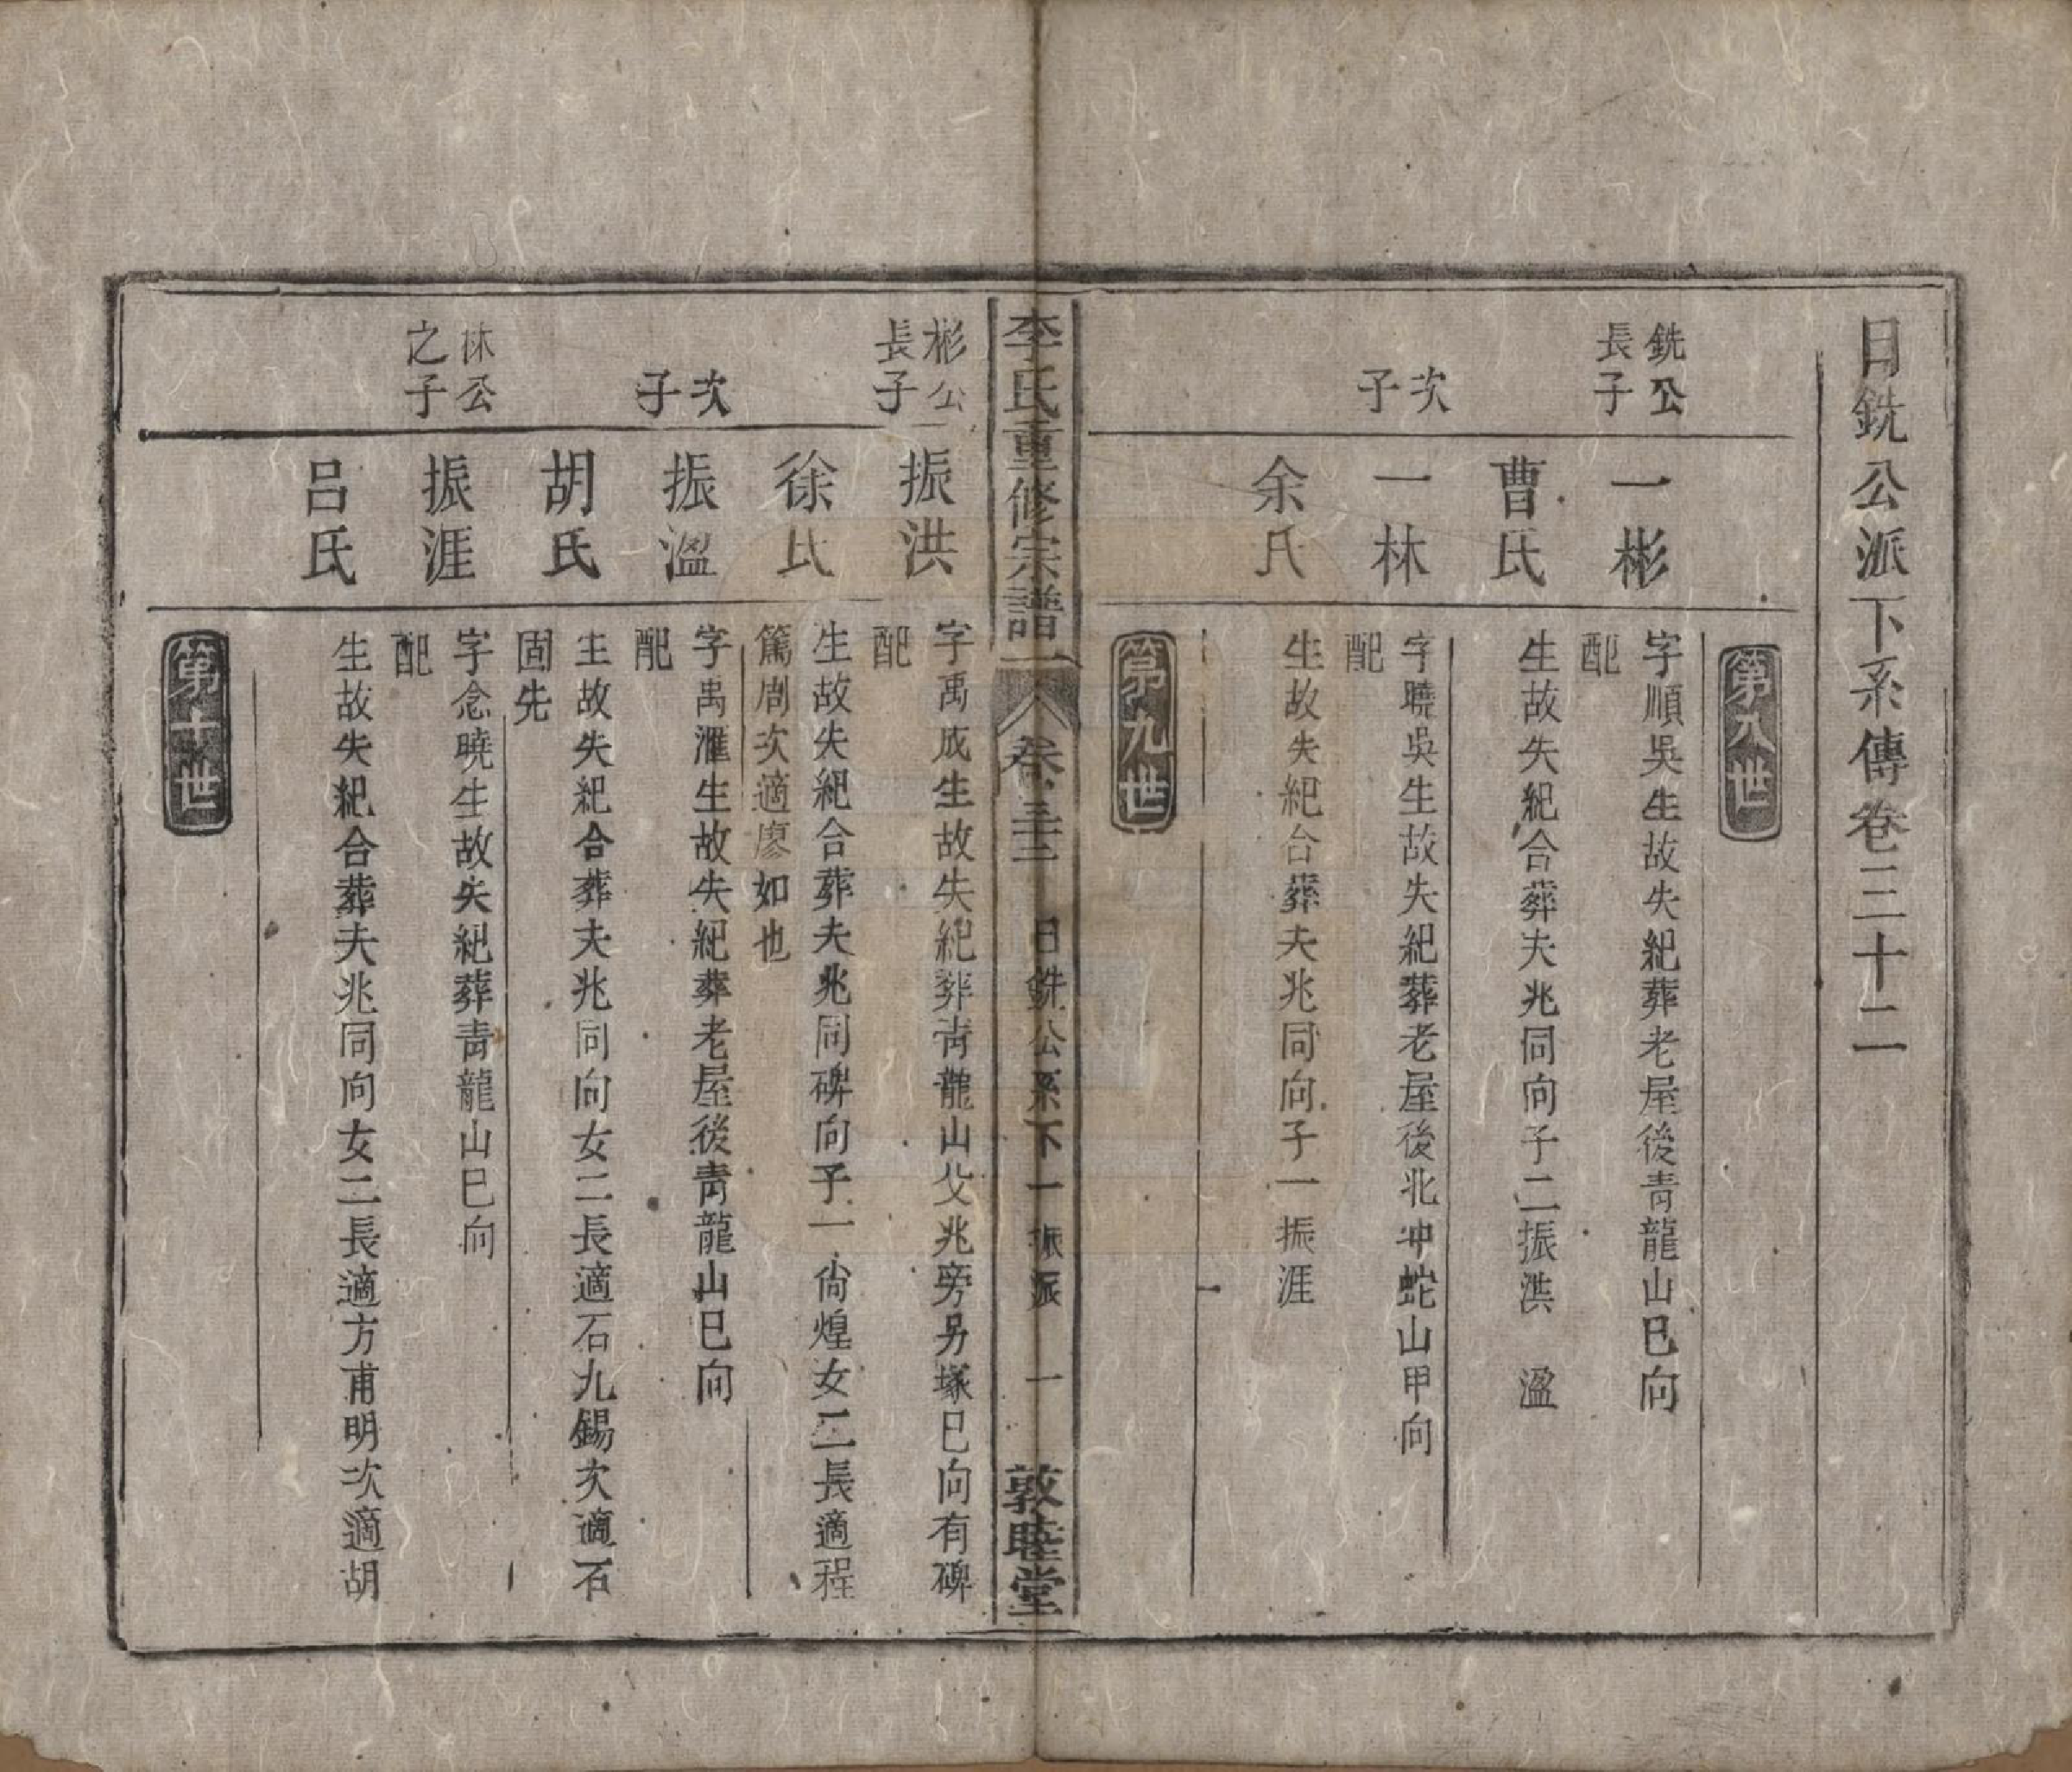 日銑公派下系傳卷三十二
第八世
銑公
長子
一彬
字順吳生故失紀葬老屋後青龍山巳向
配
曹氏
生故失紀合葬夫兆同向子二振洪　溋
次
子
一林
字曉吳生故失紀葬老屋後北冲蛇山甲向
配
余氏
生故失紀合葬夫兆同向子一振涯
第九世
李氏重修宗譜
卷三十二
日銑公系下一振派
一
敦睦堂
彬公
長子
振洪
字禹成生故失紀葬青龍山父兆旁另塚巳向有碑
配
徐氏
生故失紀合葬夫兆同碑向子一尙煌女二長適程
篤周次適廖如也
次
子
振溋
字禹滙生故失紀葬老屋後青龍山巳向
配
胡氏
生故失紀合葬夫兆同向女二長適石九錫次適石
固先
林公
之子
振涯
字念曉生故失紀葬青龍山巳向
配
呂氏
生故失紀合葬夫兆同向女二長適方甫明次適胡
第十世